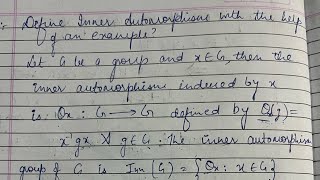 :- Define Inner Automorphisms with the help
of an example?
Let G be a group and x∈G, then the
inner automorphism indexed by x
is: Θx : G → G defined by Θ(g) =
x⁻¹gx ∀ g∈G. The inner automorphism
group of G is Inn(G) = {Θx : x∈G}